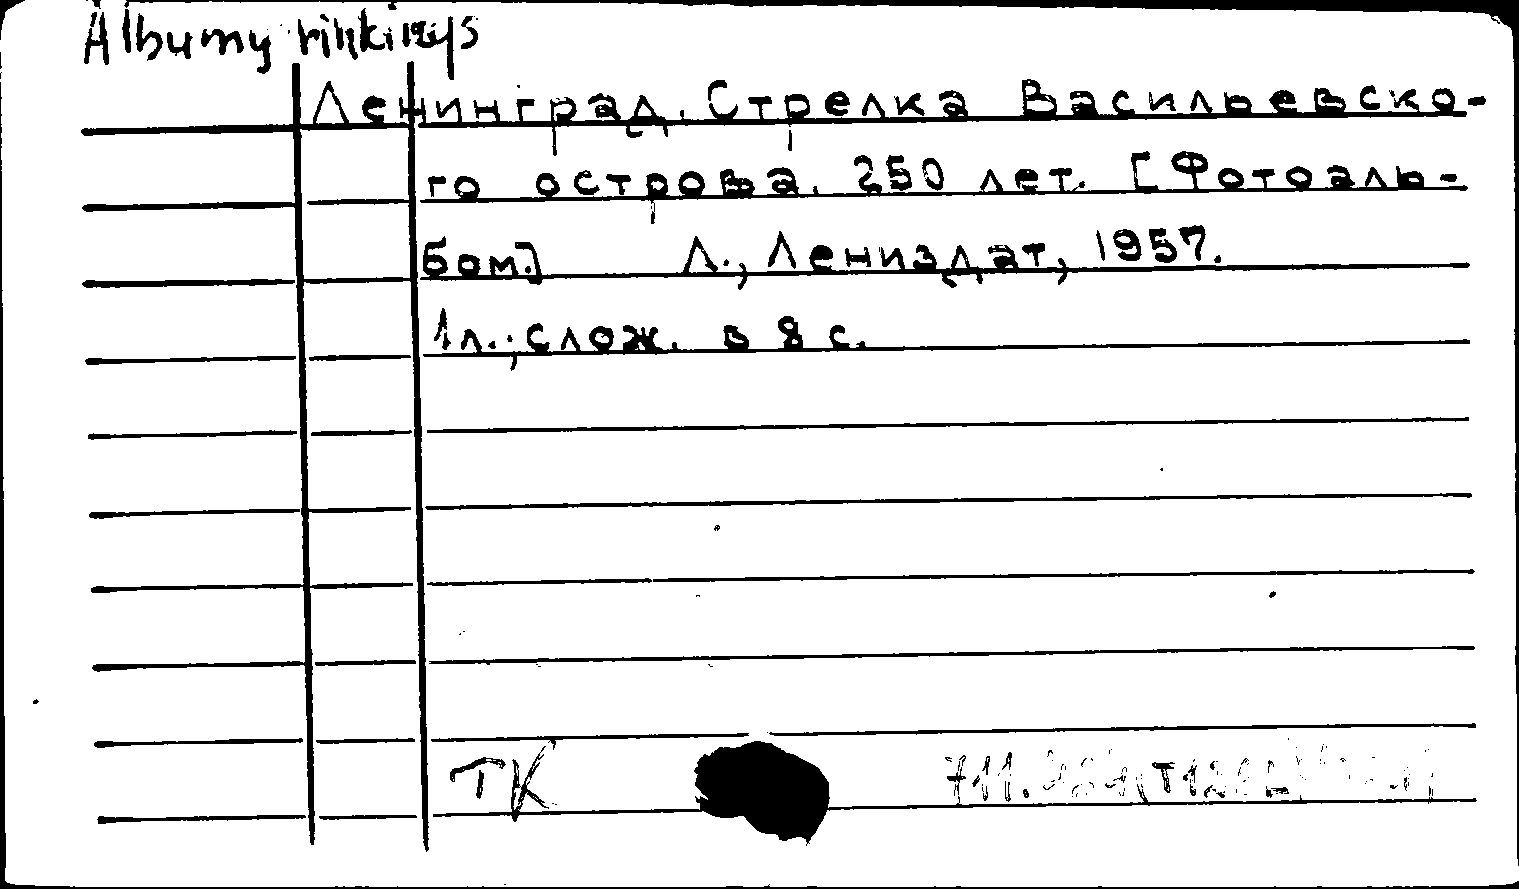 Albumų rinkinys
Ленинград. Стрелка Васильевско-
го острова. 250 лет. [Фотоаль-
бом.] Л., Лениздат, 1957.
1 л.; слож. в 8 с.
ТК